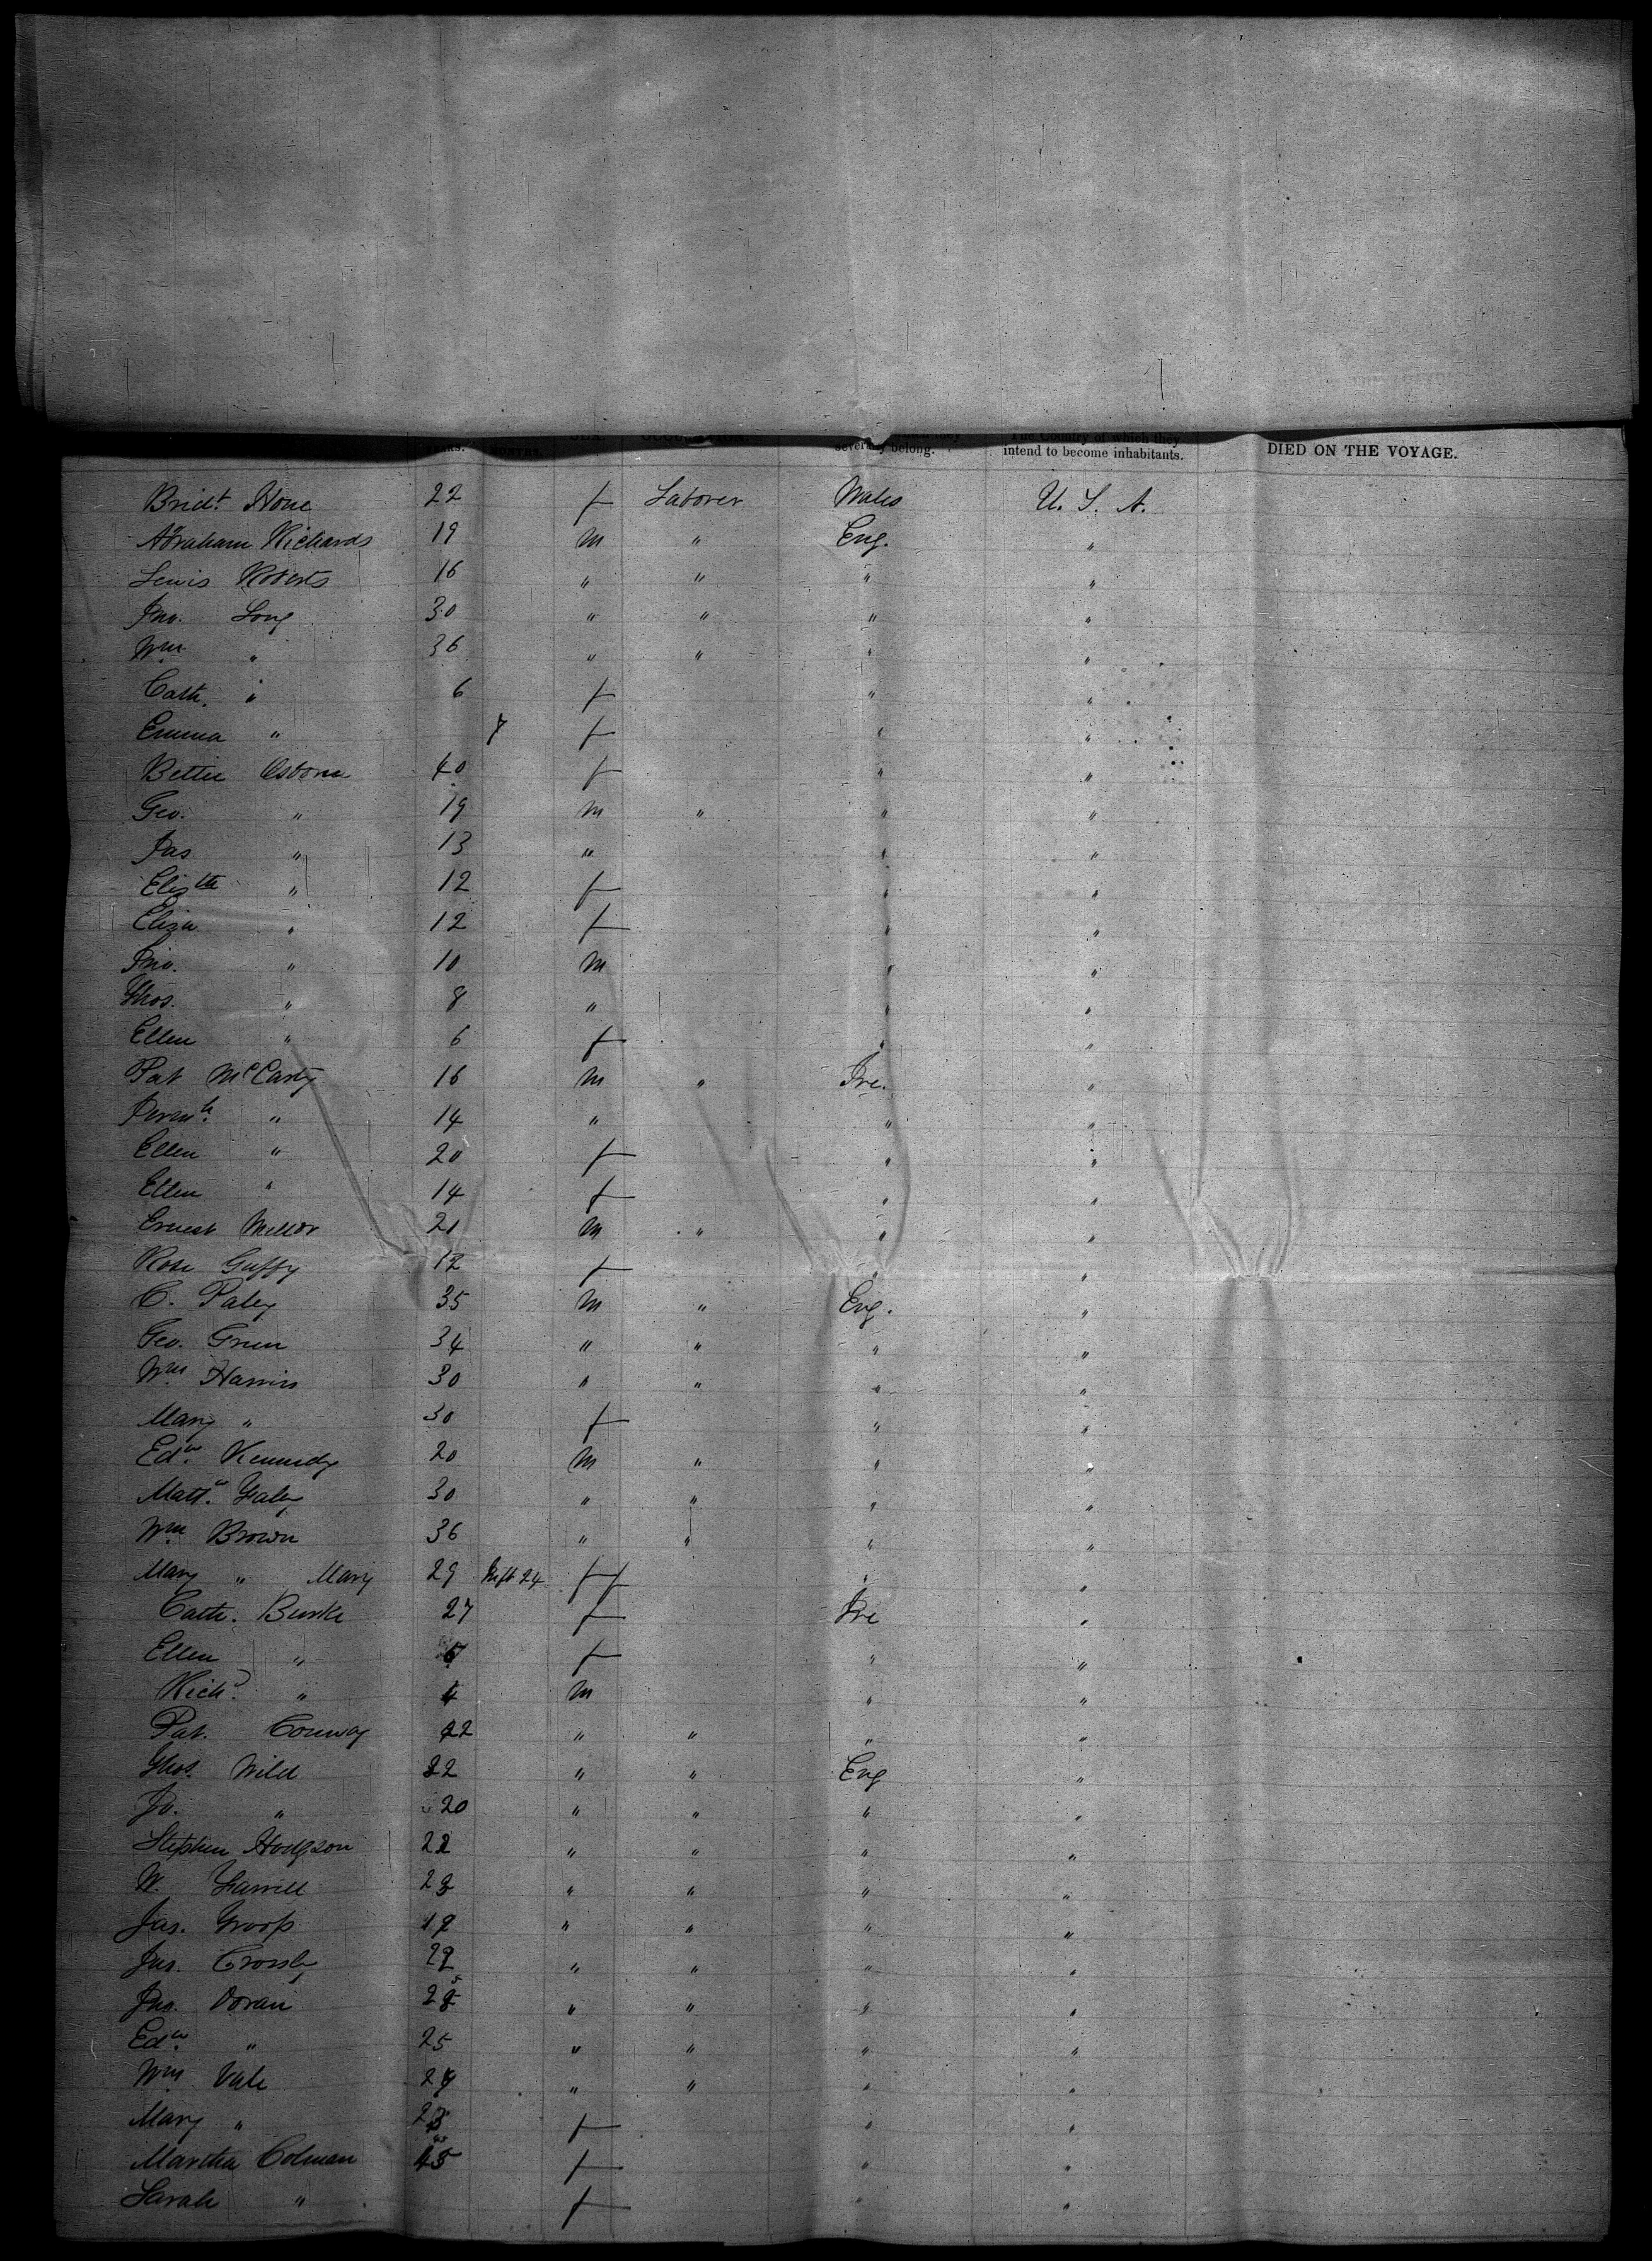 SEX. severally belong. The Country of which they intend to become inhabitants. DIED ON THE VOYAGE.
Bridt. Hone 22 f Laborer Wales U. S. A.
Abraham Richards 19 m " Eng. "
Lewis Roberts 16 " " " "
Jno. Long 30 " " " "
Wm " 36 " " " "
Cath. " 6 f " "
Emma " 7 f " "
Bettie Osborn 40 f " "
Geo. " 19 m " " "
Jas " 13 " " "
Elizth " 12 f " "
Eliza " 12 f " "
Jno. " 10 m " "
Thos. " 8 " " "
Ellen " 6 f " "
Pat McCarty 16 m " Ire. "
" 14 " " "
Ellen " 20 f " "
Ellen " 14 f " "
Ernest Miller 21 m " " "
Rose Guffy 12 f " "
C. Paley 35 m " Eng. "
Geo. Green 34 " " " "
Wm Harris 30 " " " "
Mary " 30 f " "
Edw. Kennedy 20 m " " "
Mattw. Faley 30 " " " "
Wm Brown 36 " " " "
Mary " Mary 29 Inft 24 f f " "
Cath. Burke 27 f Ire "
Ellen " f " "
Richd. " 4 m " "
Pat. Conway 22 " " " "
Thos. Wild 22 " " Eng "
Jo. " 20 " " " "
Stephen Hodgson 22 " " " "
W. Farrell 23 " " " "
Jas. " " " "
Jas. Crossly 22 " " " "
Jno. Doran " " " "
Edw. " 25 " " " "
Wm Vale " " " "
Mary " 23 f " "
Martha Colman 45 f " "
Sarah " f " "